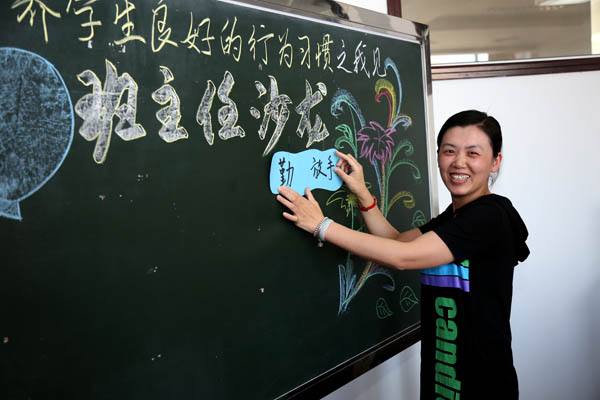 养学生良好的行为习惯之我见
班主任沙龙
勤 放手
candi